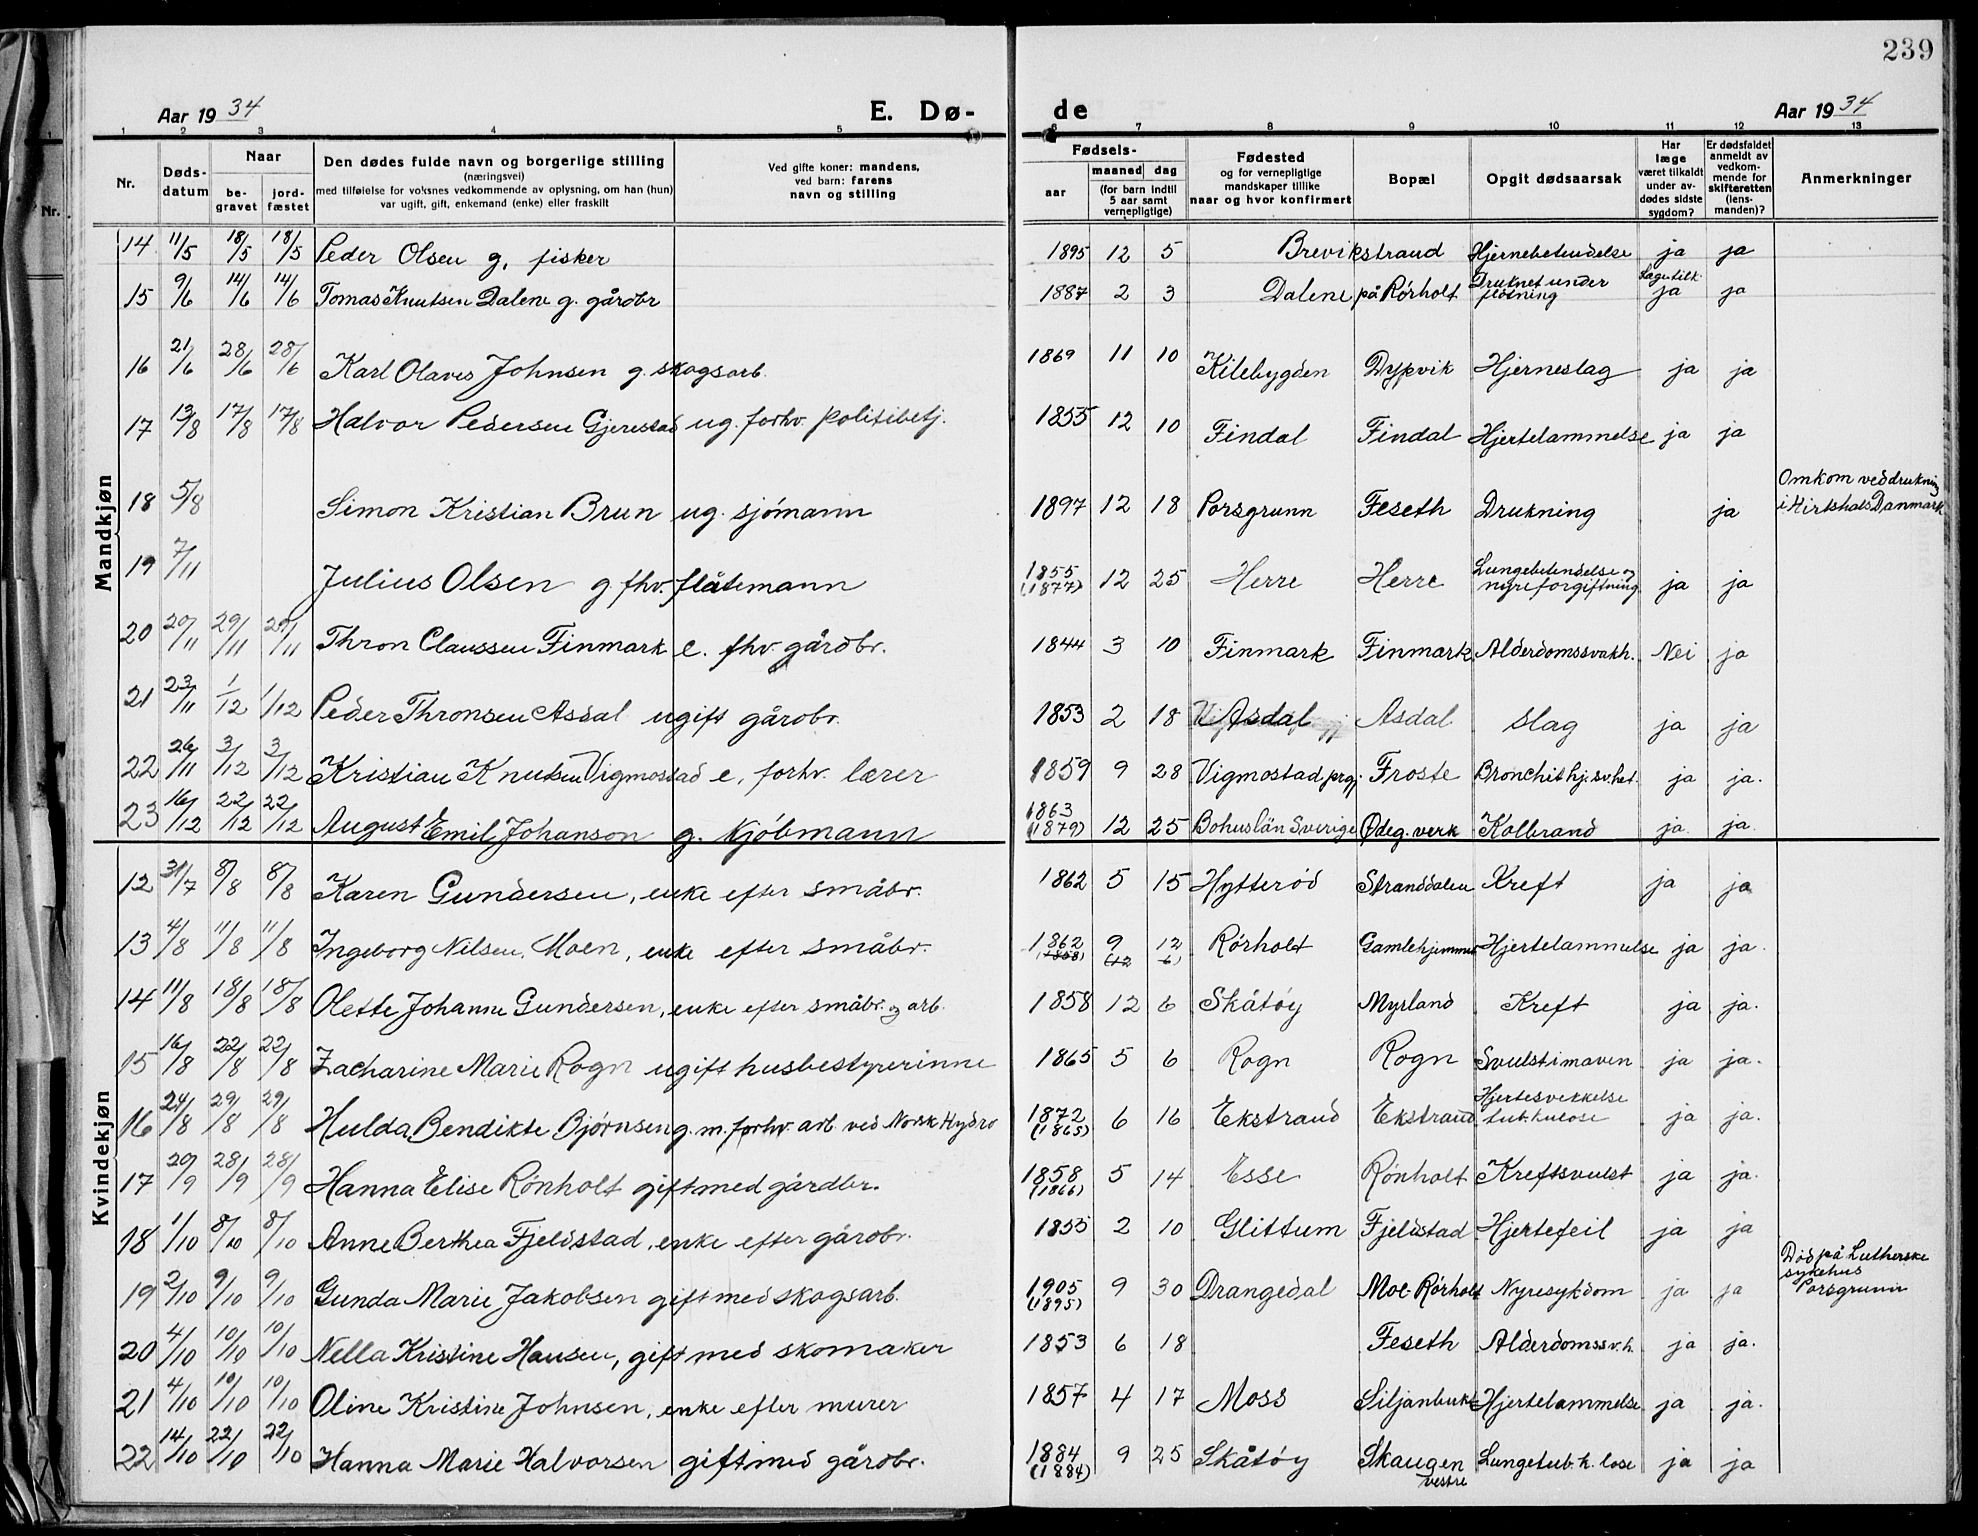 239
Aar 1934 E. Dø- de Aar 1934
1 2 3 4 5 6 7 8 9 10 11 12 13
Nr. Døds-datum Naar be-gravet jord-fæstet Den dødes fulde navn og borgerlige stilling (næringsvei) med tilføielse for voksnes vedkommende av oplysning, om han (hun) var ugift, gift, enkemand (enke) eller fraskilt Ved gifte koner: mandens, ved barn: farens navn og stilling Fødsels- aar maaned dag (for barn indtil 5 aar samt vernepligtige) Fødested og for vernepligtige mandskaper tillike naar og hvor konfirmert Bopæl Opgit dødsaarsak Har læge været tilkaldt under av-dødes sidste sygdom? Er dødsfaldet anmeldt av vedkom-mende for skifteretten (lens-manden)? Anmerkninger
Mandkjøn
14 11/5 18/5 18/5 Peder Olsen g, fisker 1895 12 5 Brevikstrand Hjernebetendelse ja ja
15 9/6 14/6 14/6 Tomas Knutsen Dalene g. gårdbr 1887 2 3 Dalene på Rörholt Druknet under fløtning Lege tilk. ja ja
16 21/6 28/6 28/6 Karl Olaves Johnsen g. skogsarb. 1869 11 10 Kilebygden Dypvik Hjerneslag ja ja
17 13/8 17/8 17/8 Halvor Pedersen Gjerestad ug. forhv. politibetj. 1855 12 10 Findal Findal Hjertelammelse ja ja
18 5/8 Simon Kristian Brun ug. sjómann 1897 12 18 Porsgrunn Feseth Drukning ja Omkom ved drukning i Hirtshals Danmark
19 7/11 Julius Olsen g. fhv. flåtemann 1855 (1877) 12 25 Herre Herre Lungebetendelse og nyreforgiftning ja ja
20 20/11 29/11 29/11 Thron Claussen Finmark e. fhv. gårdbr. 1844 3 10 Finmark Finmark Alderdomssvakh. Nei ja
21 23/11 1/12 1/12 Peder Thronsen Asdal ugift gårdbr. 1853 2 18 Asdal Asdal Slag ja ja
22 26/11 3/12 3/12 Kristian Knutsen Vigmostad e, forhv. lærer 1859 9 28 Vigmostad prgj. Froste Bronchit hj.sv.het. ja ja.
23 16/12 22/12 22/12 August Emil Johanson g. Kjöbmann 1863 (1879) 12 25 Bohuslän Sverige Ødeg. verk Kolbrand ja. ja.
Kvindekjøn
12 31/7 8/8 8/8 Karen Gundersen, enke efter småbr. 1862 5 15 Hytterød Stranddalen Kreft ja ja
13 4/8 11/8 11/8 Ingeborg Nilsen, Moen, enke efter småbr. 1862 (1858) 9 (12 12 6) Rörholt Gamlehjemmet Hjertelammelse ja ja.
14 11/8 18/8 18/8 Olette Johanne Gundersen, enke efter småbr. og arb. 1858 12 6 Skåtöy Myrland Kreft ja ja.
15 16/8 22/8 22/8 Zacharine Marie Rogn ugift husbestyrerinne 1865 5 6 Rogn Rogn Svulst i maven ja ja.
16 24/8 29/8 29/8 Hulda Bendikte Bjørnsen g. m. forhv. arb. ved Norsk Hydro 1872 (1865) 6 16 Ekstrand Ekstrand Hjertesvekkelse tub.kulose ja ja.
17 20/9 28/9 28/9 Hanna Elise Rönholt gift med gårdbr. 1858 (1866) 5 14 Esse Rönholt Kreftsvulst ja ja.
18 1/10 8/10 8/10 Anne Berthea Fjeldstad, enke efter gårdbr. 1855 2 10 Glittum Fjeldstad Hjertefeil ja ja
19 2/10 9/10 9/10 Gunda Marie Jakobsen gift med skogsarb. 1905 (1895) 9 30 Drangedal Moe-Rörholt Nyresykdom ja ja Död på Lutherske sykehus Porsgrunn
20 4/10 10/10 10/10 Nella Kristine Hansen, gift med skomaker 1853 6 18 Feseth Alderdomssv.h. ja ja.
21 4/10 10/10 10/10 Oline Kristine Johnsen, enke efter murer 1857 4 17 Moss Siljanbukt Hjertelammelse ja ja.
22 14/10 22/10 22/10 Hanna Marie Halvorsen gift med gårdbr. 1884 (1884) 9 25 Skåtöy Skaugen vestre Lungetub.k.lose ja ja